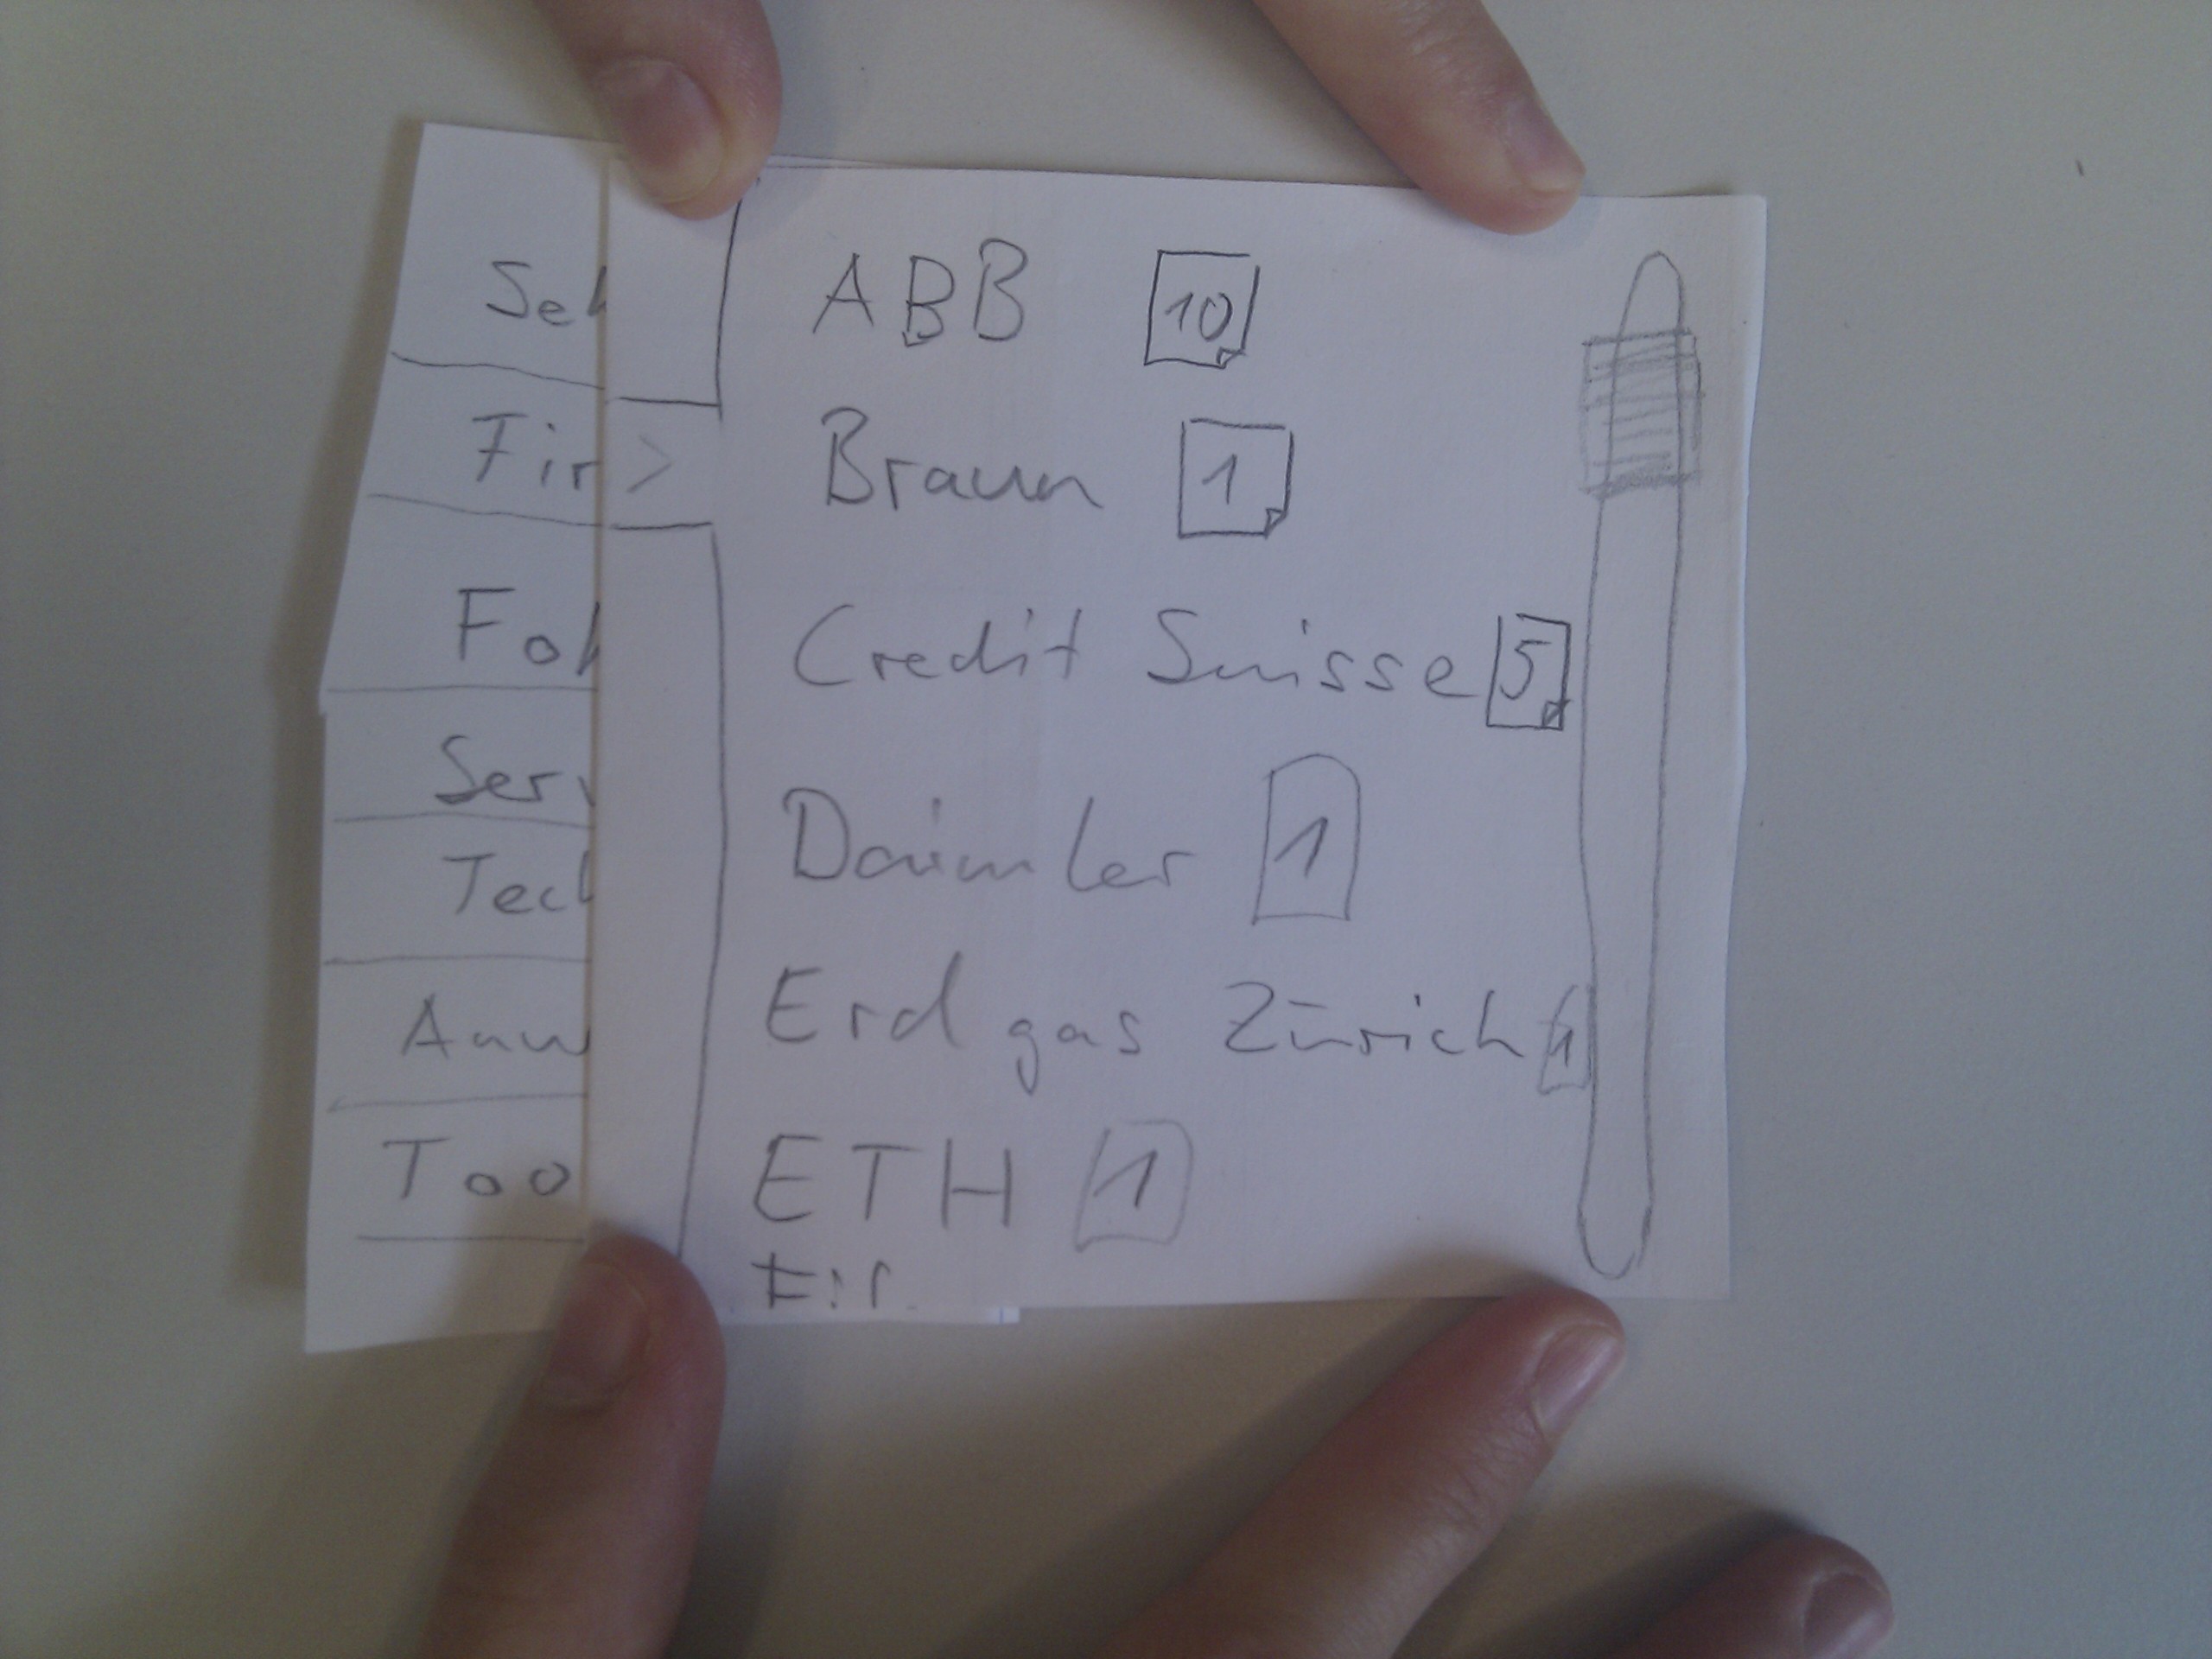 Seh
Fir >
Foh
Serv
Tech
Anw
Too
ABB 10
Braun 1
Credit Suisse 5
Daimler 1
Erdgas Zürich 1
ETH 1